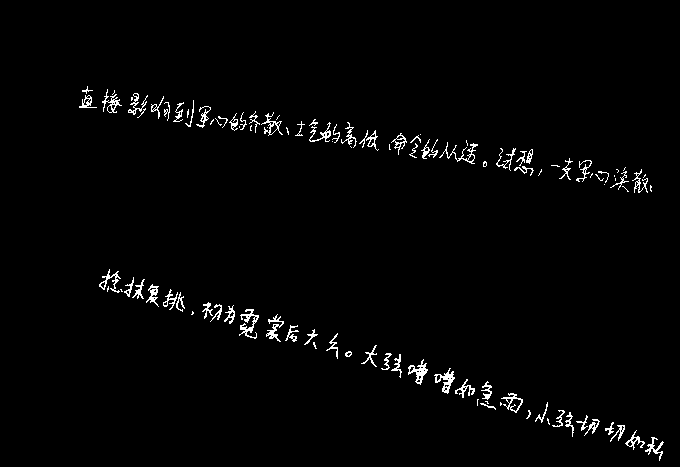 直接影响到军心的齐散、士气的高低命令的从违。试想,一支军心涣散、
捻抹复挑,初为霓裳后六幺。大弦嘈嘈如急雨,小弦切切如私